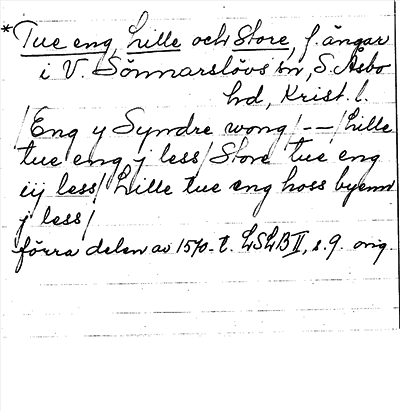 *Tue eng, Lille och Store, f. ängar
i V. Sönnarslövs sn, S. Åsbo
hd, Krist. l.
/Eng y Syndre wong/ -- /Lille
tue eng j less/ Store tue eng
iij less/ Lille tue eng hoss byenn
j less/
förra delen av 1570-t. LSLB II, s. 9. orig.